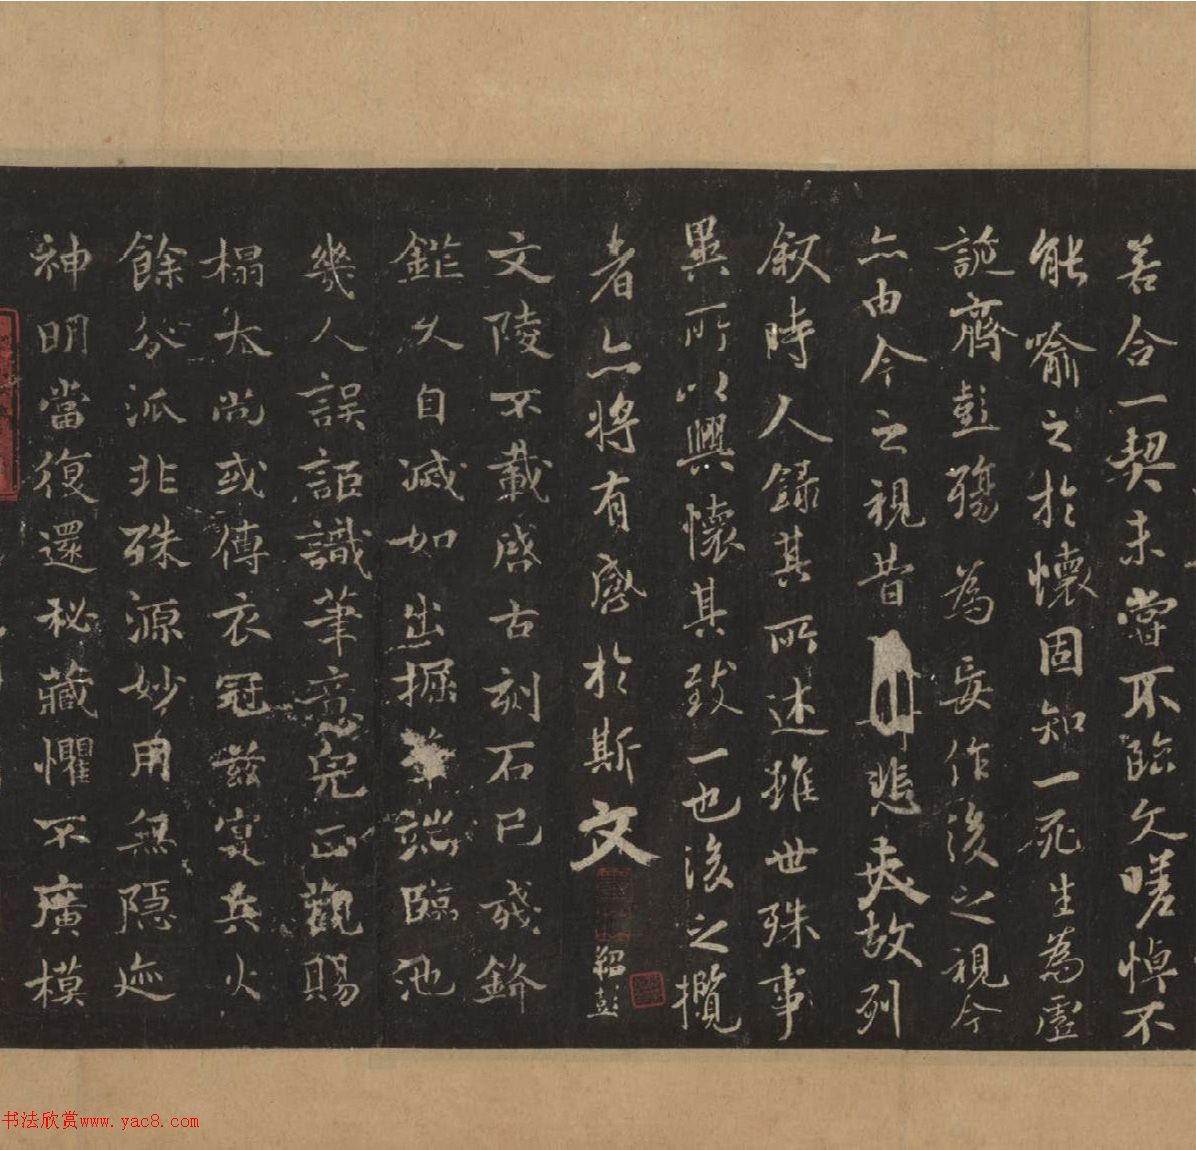 若合一契未嘗不臨文嗟悼不
能喻之於懷固知一死生為虛
誕齊彭殤為妄作後之視今
亦由今之視昔悲夫故列
叙時人錄其所述雖世殊事
異所以興懷其致一也後之攬
者亦將有感於斯文
紹彭
文陵不載啓古刻石已殘鋒
鋩久自滅如出掘筆端臨池
幾人誤詎識筆意完正觀賜
榻本尚或傳衣冠茲更兵火
餘分派非殊源妙用無隱迹
神明當復還秘藏懼不廣模
书法欣赏www.yac8.com